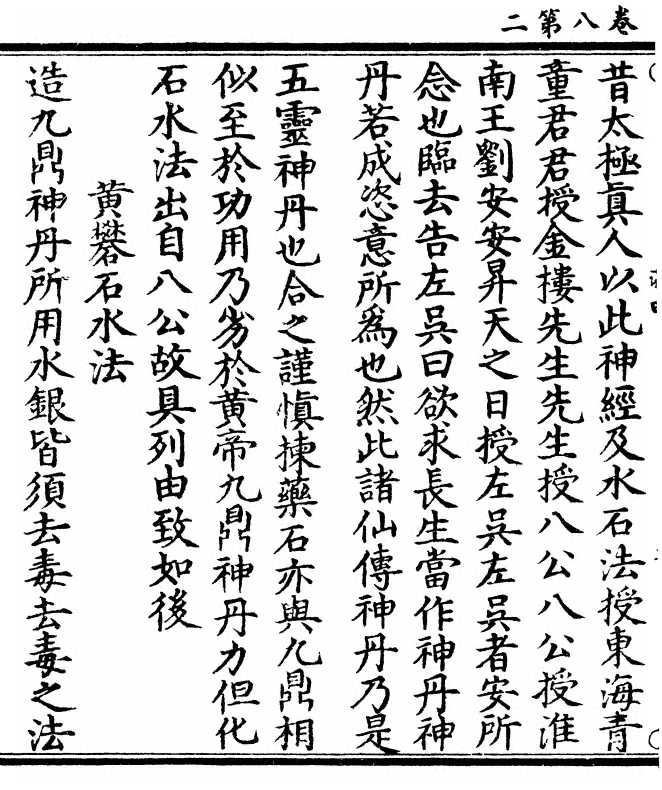 卷八第二
昔太極真人以此神經及水石法授東海青
童君君授金摟先生先生授八公八公授淮
南王劉安安昇天之日授左吳左吳者安所
念也臨去告左吳曰欲求長生當作神丹神
丹若成恣意所為也然此諸仙傳神丹乃是
五靈神丹也合之謹慎揀藥石亦與九鼎相
似至於功用乃劣於黃帝九鼎神丹力但化
石水法出自八公故具列由致如後
黃礬石水法
造九鼎神丹所用水銀皆須去毒去毒之法